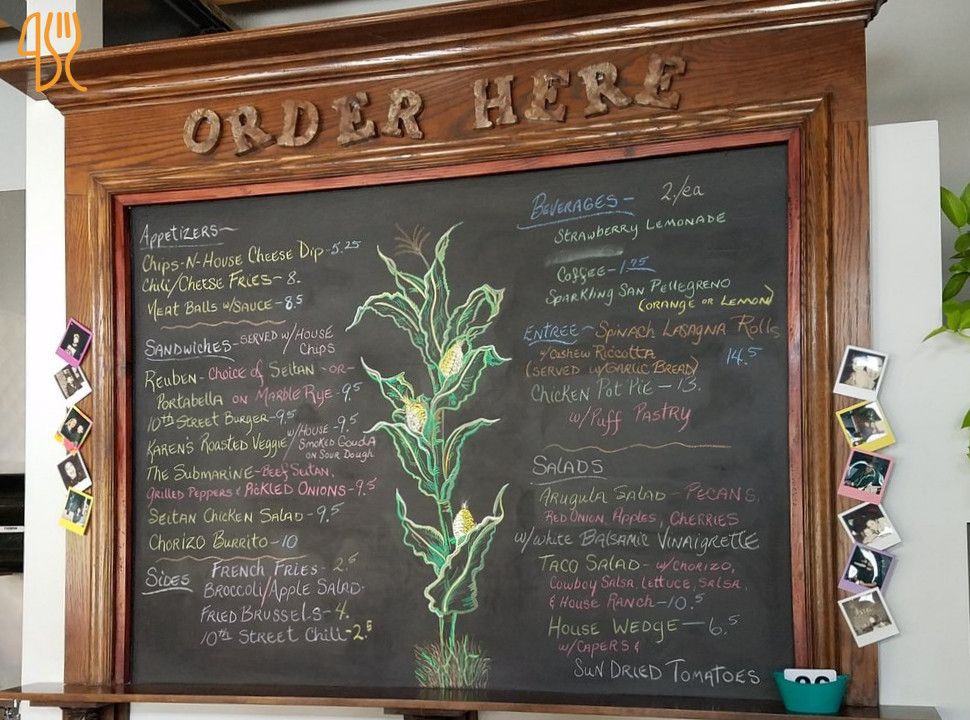 ORDER HERE
Appetizers-
Chips-N-House Cheese Dip-5.25
Chili/Cheese Fries-8.
Meat Balls w/Sauce-8.5
Sandwiches-served w/House
Chips
Reuben-Choice of Seitan -or-
Portabella on Marble Rye-9.5
10th Street Burger-9.5
Karen's Roasted Veggie w/House -9.5
Smoked Gouda
on Sour Dough
The Submarine-Beef Seitan,
Grilled Peppers & Pickled Onions-9.5
Seitan Chicken Salad-9.5
Chorizo Burrito-10
Sides French Fries-2.5
Broccoli/Apple Salad-
Fried Brussels-4.
10th Street Chili-2.5
Beverages- 2./ea
Strawberry Lemonade
Coffee-1.75
Sparkling San Pellegreno
(Orange or Lemon)
Entree-Spinach Lasagna Rolls
w/Cashew Riccotta 14.5
(Served w/Garlic Bread)
Chicken Pot Pie-13.
w/Puff Pastry
Salads
Arugula Salad-Pecans,
Red Onion, Apples, Cherries
w/white Balsamic Vinaigrette
Taco Salad-w/Chorizo,
Cowboy Salsa, Lettuce, Salsa,
& House Ranch-10.5
House Wedge-6.5
w/Capers &
Sun Dried Tomatoes